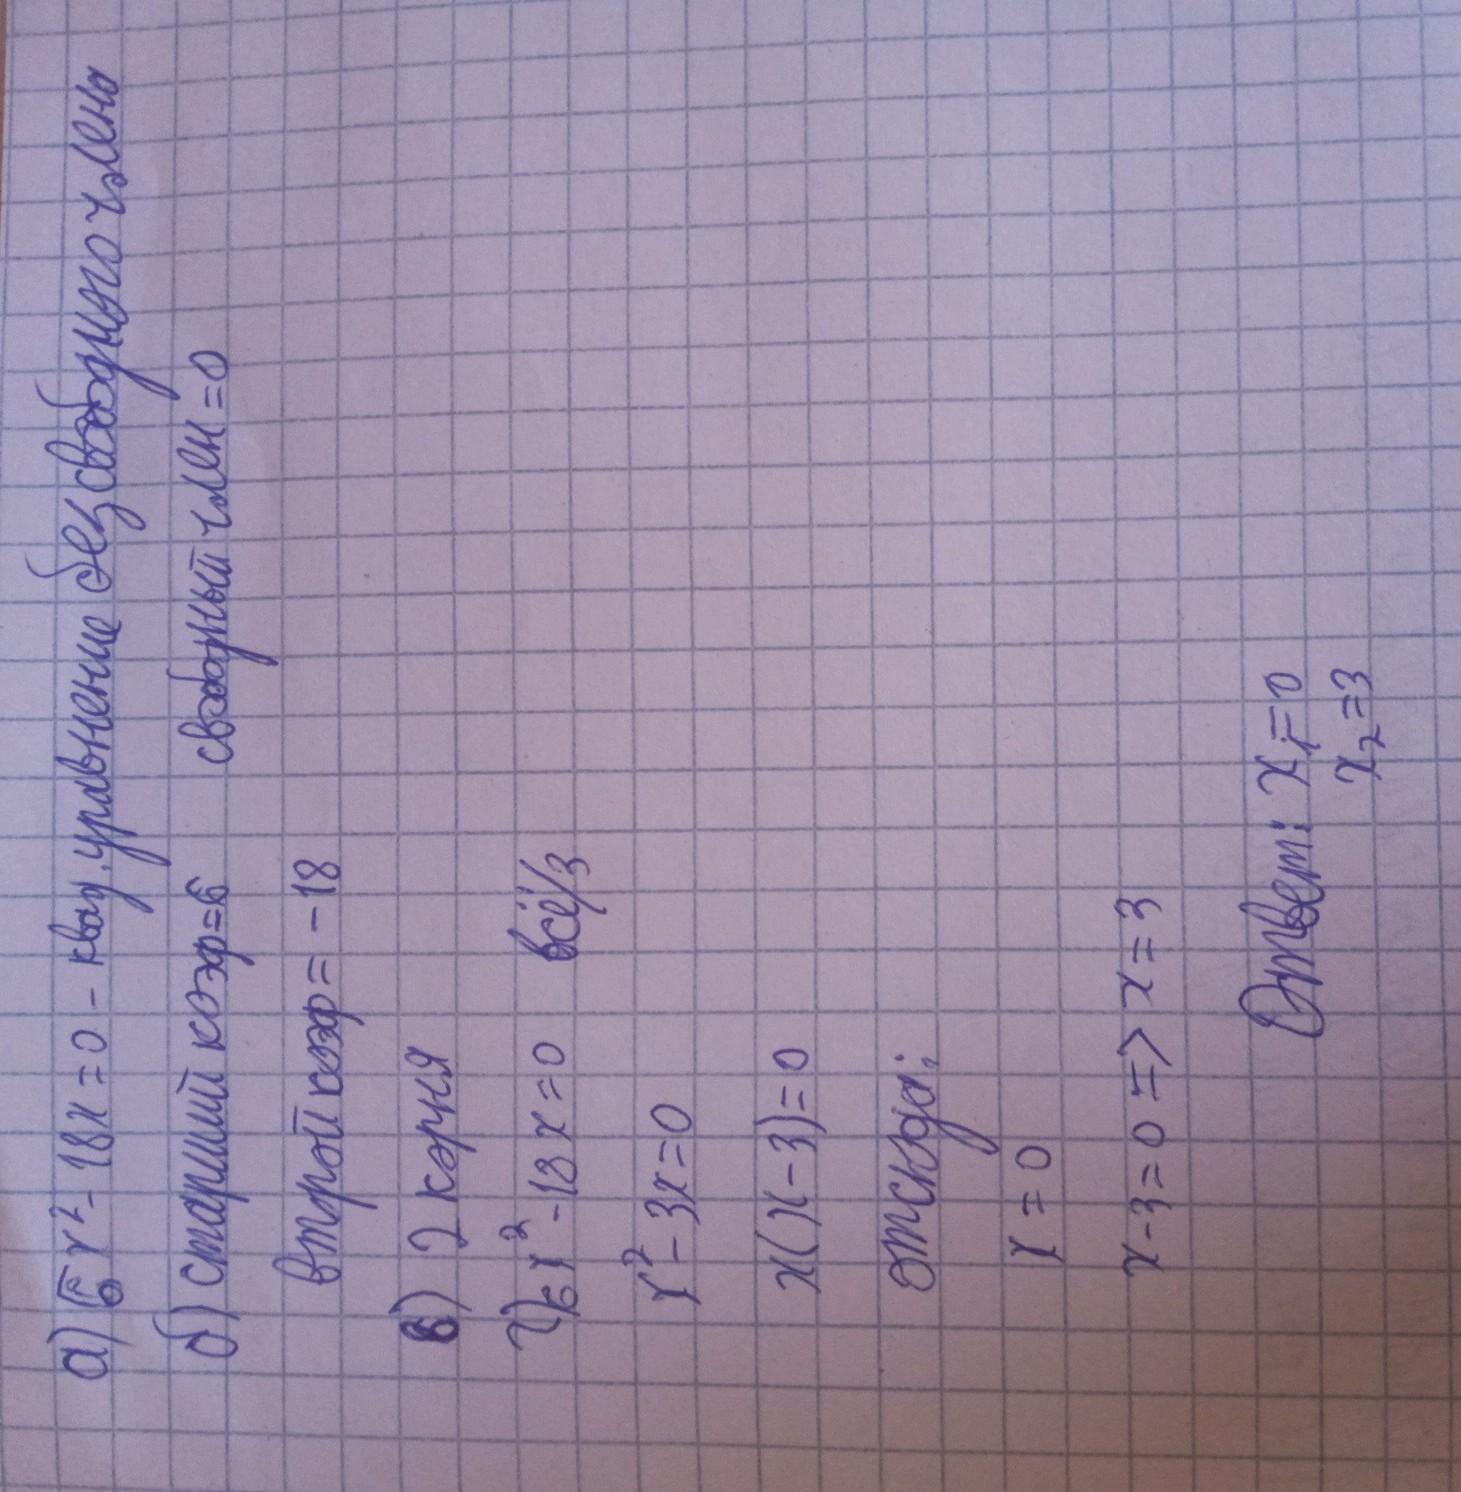 а) 6x² - 18x = 0 - квад. уравнение без свободного члена
б) старший коэф = 6 свободный член = 0
второй коэф = -18
в) 2 корня
г) 6x² - 18x = 0 всё/3
x² - 3x = 0
x(x - 3) = 0
отсюда:
x = 0
x - 3 = 0 => x = 3
Ответ: x₁ = 0
x₂ = 3